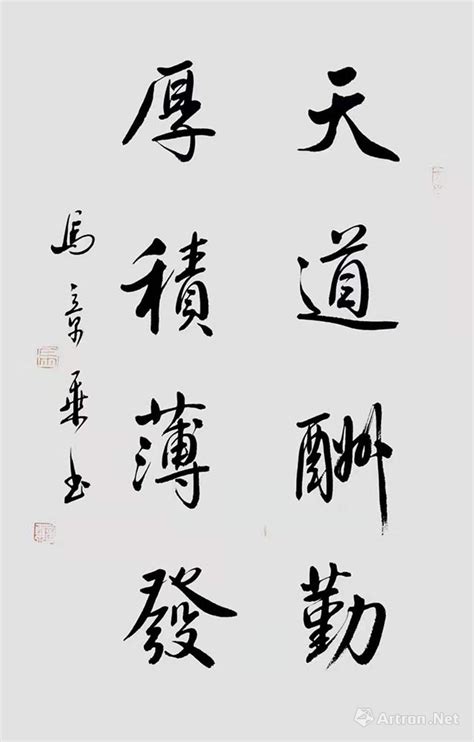 天道酬勤
厚積薄發
馬章乘书
Artron.Net